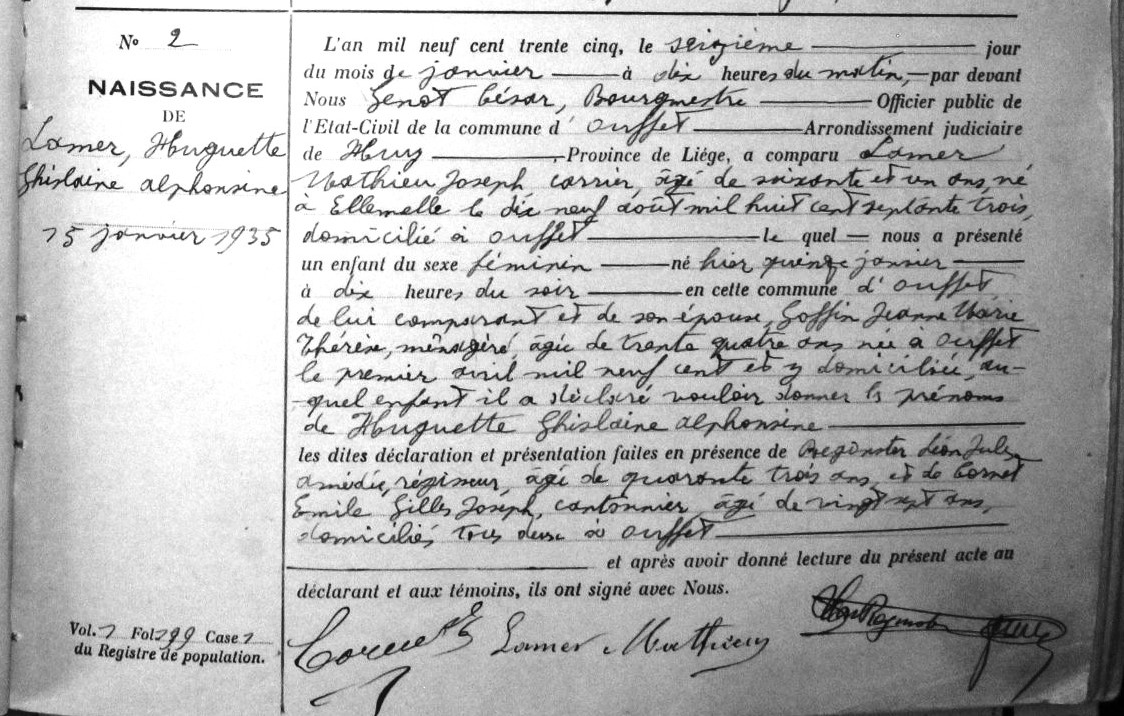 N° 2
NAISSANCE
DE
Lamer, Huguette
Ghislaine alphonsine
15 janvier 1935
Vol. 7 Fol. 299 Case 1
du Registre de population.
L'an mil neuf cent trente cinq, le seizième jour
du mois de janvier à dix heures du matin, par devant
Nous Genot César, Bourgmestre Officier public de
l'Etat-Civil de la commune d' Ouffet Arrondissement judiciaire
de Huy, Province de Liége, a comparu Lamer
Mathieu Joseph carrier, âgé de soixante et un ans, né
à Ellemelle le dix neuf août mil huit cent septante trois,
domicilié à Ouffet le quel nous a présenté
un enfant du sexe féminin né hier quinze janvier
à dix heures du soir en cette commune d'Ouffet
de lui comparant et de son épouse, Goffin Jeanne Marie
Thérèse, ménagère, âgée de trente quatre ans née à Ouffet
le premier avril mil neuf cent et y domiciliée, au-
-quel enfant il a déclaré vouloir donner les prénoms
de Huguette Ghislaine alphonsine
les dites déclaration et présentation faites en présence de Léon Jules
amédée, régisseur, âgé de quarante trois ans, et de Cornet
Emile Gilles Joseph, cantonnier âgé de vingt sept ans,
domiciliés tous deux à Ouffet
et après avoir donné lecture du présent acte au
déclarant et aux témoins, ils ont signé avec Nous.
Cornet E Lamer Mathieu